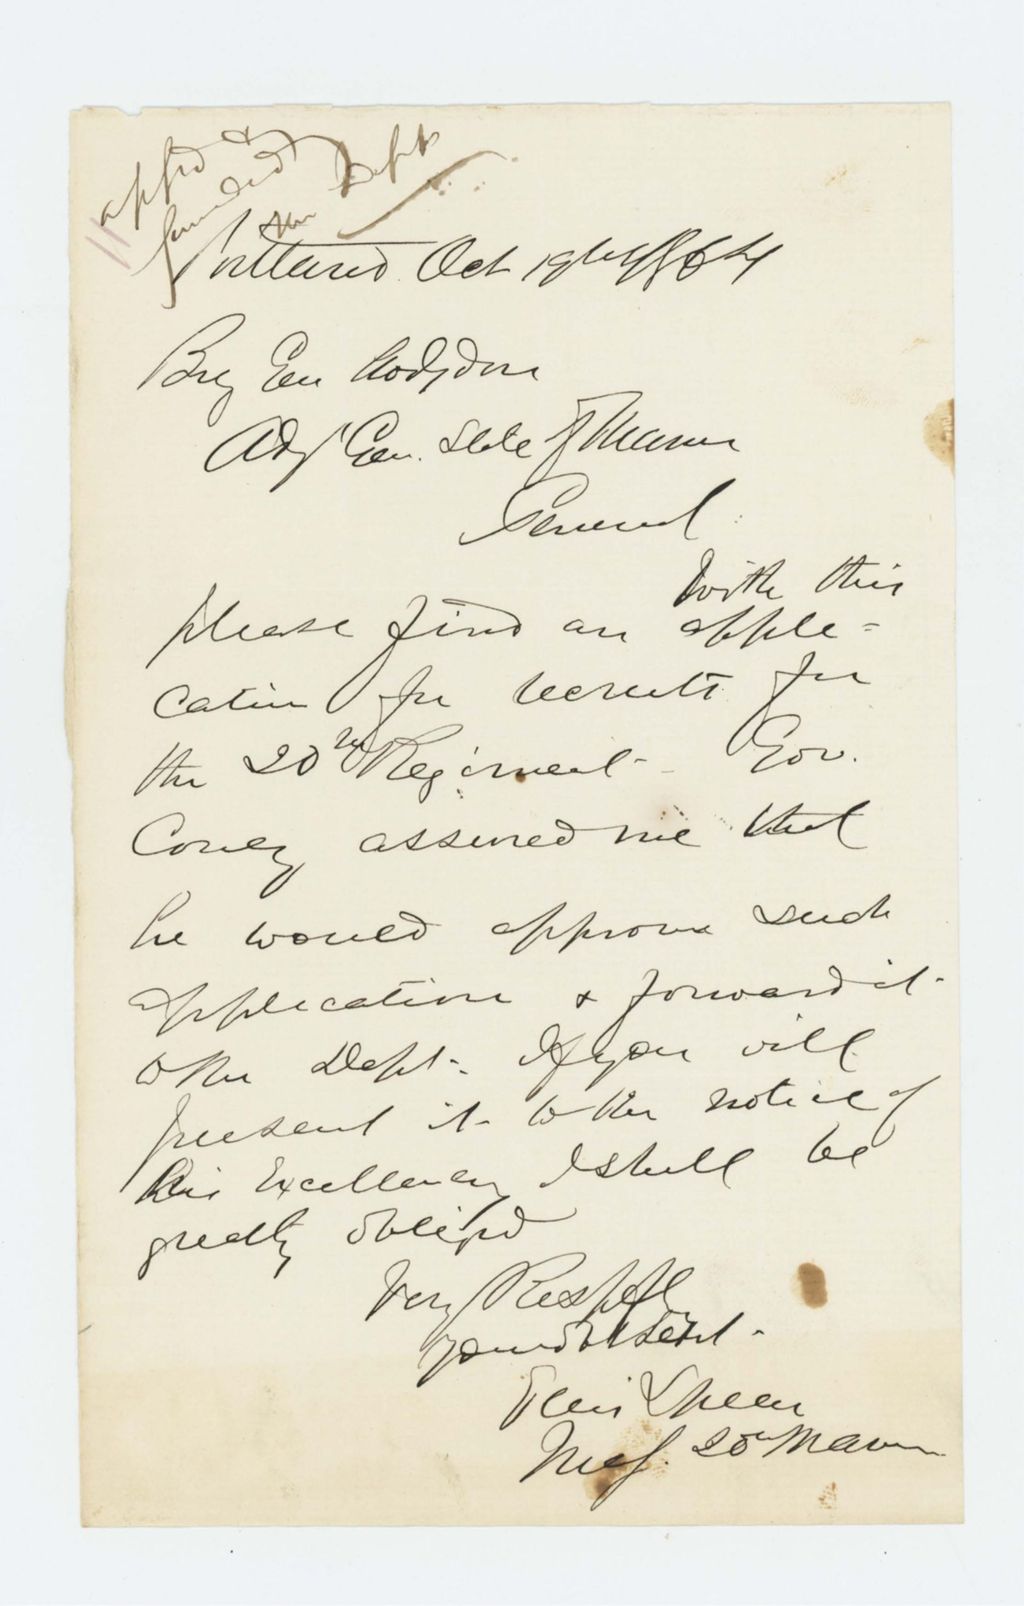 appd &
forwarded
the Dept
Portland Oct 19th 1864
Brig Gen Hodsdon
Adjt Gen. State of Maine
General
With this
please find an appli=
cation for recruits for
the 20th Regiment - Gov.
Coney assured me that
he would approve such
application & forward it
to the Dept. If you will
present it to the notice of
his Excellency I shall be
greatly obliged
Very Respfly
your obt Sevt
Ellis Spear
Maj. 20th Maine